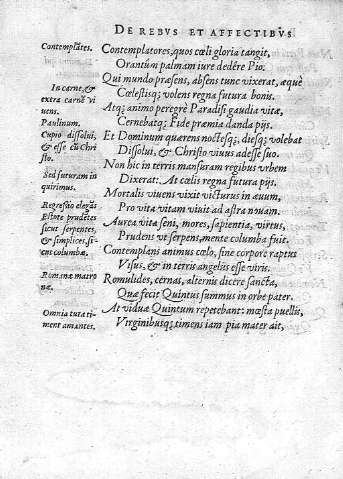 DE REBVS ET AFFECTIBVS
Contemplātes.
Contemplatores, quos cœli gloria tangit,
Orantūm palmam iure dedêre Pio.
Qui mundo præsens, absens tunc vixerat, æquè
In carne, &
extra carnē vi
uens.
Cœlestisq; volens regna futura bonis.
Atq; animo peregrè Paradisi gaudia vitæ,
Paulinum.
Cernebatq; Fide præmia danda pijs.
Cupio dissolui,
& esse cū Chri
sto.
Et Dominum quærens noctesq;, diesq; volebat
Dissolui, & Christo viuus adesse suo.
Non hic in terris mansuram regibus vrbem
Sed futuram in
quirimus.
Dixerat: At cœlis regna futura pijs.
Mortalis viuens vixit victurus in æuum,
Regressio elegās
Pro vita vitam viuit ad astra nouam.
Estote prudētes
sicut serpentes,
& simplices, si-
cut columbæ.
Aurea vita seni, mores, sapientia, virtus,
Prudens vt serpens, mente columba fuit.
Contemplans animus cœlo, sine corpore raptus
Visus, & in terris angelus esse viris.
Romanæ matro
næ.
Romulides, cernas, alternis dicere sancta,
Quæ fecit Quintus summus in orbe pater.
At viduæ Quintum repetebant: mœsta puellis,
Omnia tuta ti-
ment amantes.
Virginibusq; timens iam pia mater ait,